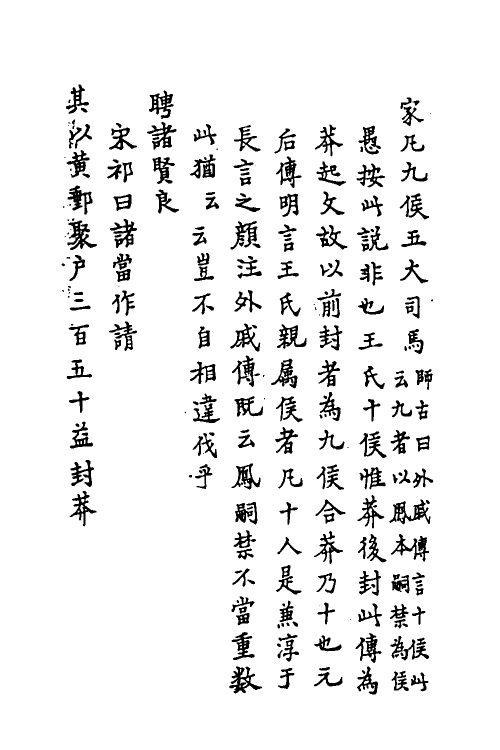 家凡九侯五大司馬師古曰外戚傳言十侯此
云九者以鳳本嗣禁為侯
愚按此說非也王氏十侯惟莽後封此傳為
莽起文故以前封者為九侯合莽乃十也元
后傳明言王氏親属侯者凡十人是兼淳于
長言之顔注外戚傳既云鳳嗣禁不當重数
此猶云云豈不自相違伐乎
聘諸賢良
宋祁曰諸當作請
其以黄郵聚户三百五十益封莽